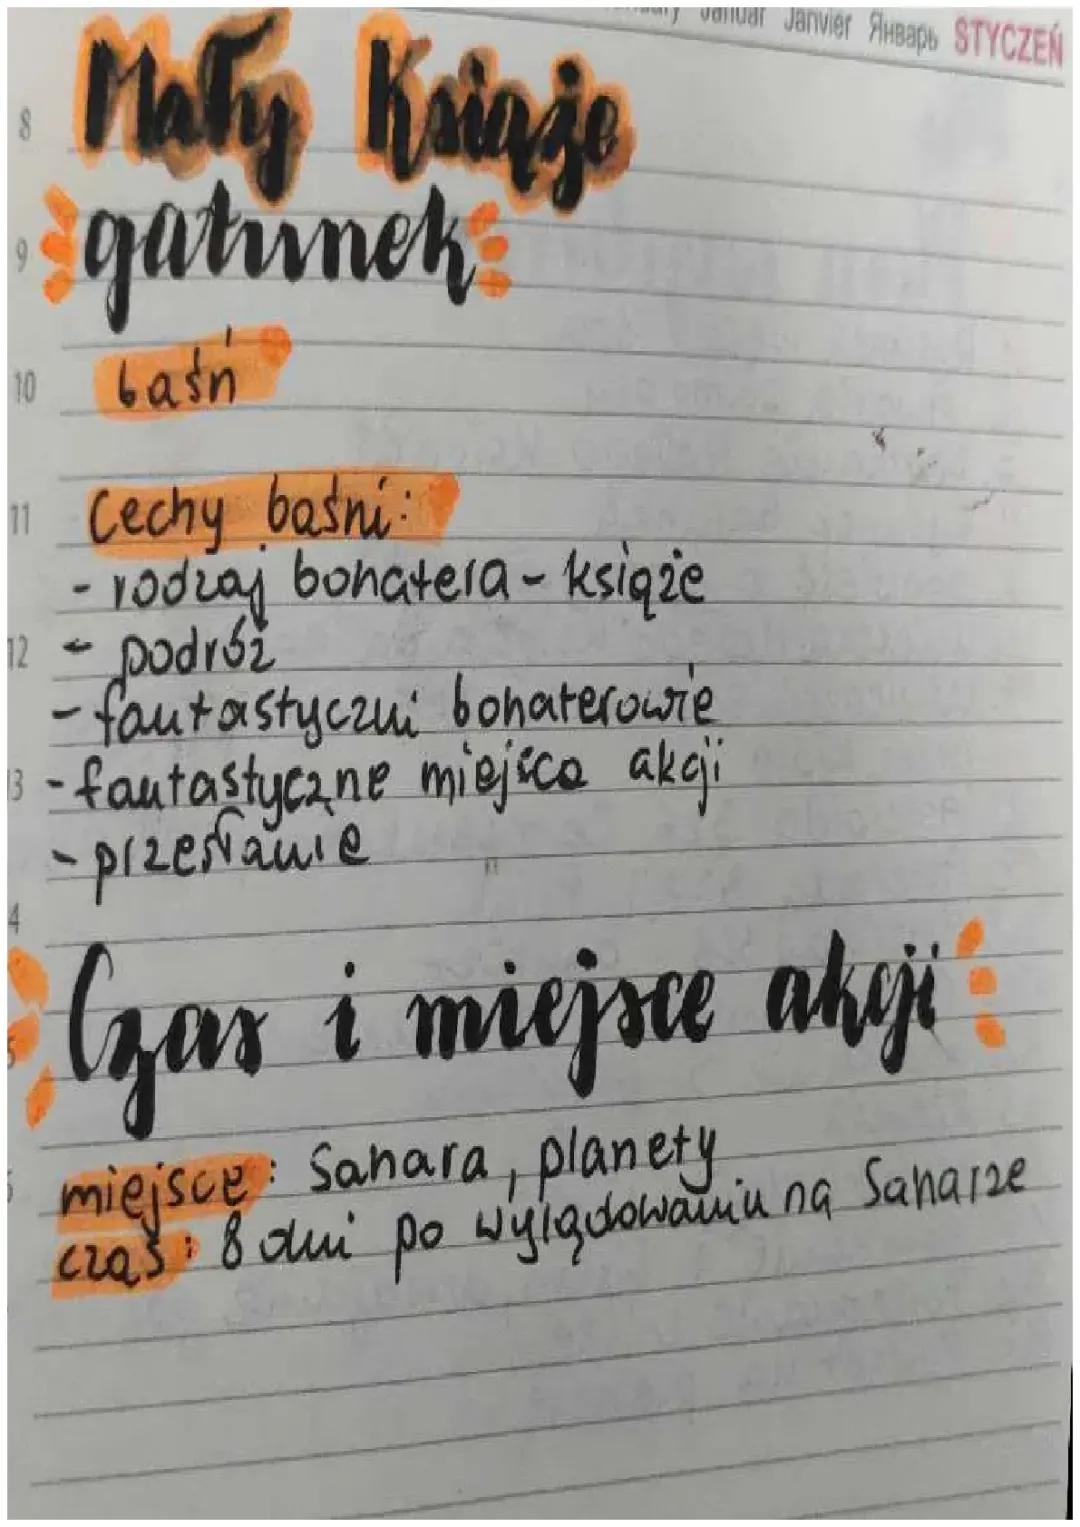 Januar Janvier Январь STYCZEŃ
8 Mały Książe
9 gatunek
10 baśń
11 Cechy baśni:
- rodzaj bohatera - książe
12 - podróż
- fantastyczni bohaterowie
13 - fantastyczne miejsca akcji
- przesłanie
4
Czas i miejsce akcji
miejsce: Sahara, planety
czas: 8 dni po wylądowaniu na Saharze